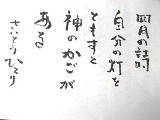 四月の詩
自分の灯を
ともすと
神のかごが
ある
さいとうひとり